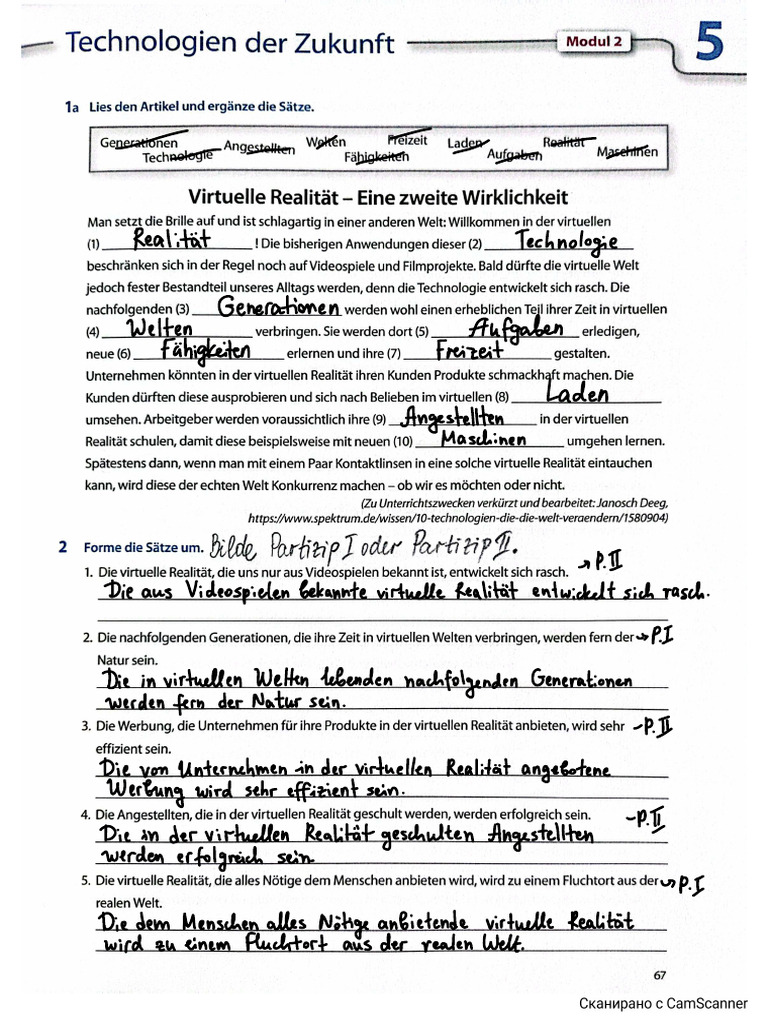 Technologien der Zukunft Modul 2 5
1a Lies den Artikel und ergänze die Sätze.
Generationen Angestellten Welten Freizeit Laden Realität Maschinen
Technologie Fähigkeiten Aufgaben
Virtuelle Realität – Eine zweite Wirklichkeit
Man setzt die Brille auf und ist schlagartig in einer anderen Welt: Willkommen in der virtuellen
(1) Realität ! Die bisherigen Anwendungen dieser (2) Technologie
beschränken sich in der Regel noch auf Videospiele und Filmprojekte. Bald dürfte die virtuelle Welt
jedoch fester Bestandteil unseres Alltags werden, denn die Technologie entwickelt sich rasch. Die
nachfolgenden (3) Generationen werden wohl einen erheblichen Teil ihrer Zeit in virtuellen
(4) Welten verbringen. Sie werden dort (5) Aufgaben erledigen,
neue (6) Fähigkeiten erlernen und ihre (7) Freizeit gestalten.
Unternehmen könnten in der virtuellen Realität ihren Kunden Produkte schmackhaft machen. Die
Kunden dürften diese ausprobieren und sich nach Belieben im virtuellen (8) Laden
umsehen. Arbeitgeber werden voraussichtlich ihre (9) Angestellten in der virtuellen
Realität schulen, damit diese beispielsweise mit neuen (10) Maschinen umgehen lernen.
Spätestens dann, wenn man mit einem Paar Kontaktlinsen in eine solche virtuelle Realität eintauchen
kann, wird diese der echten Welt Konkurrenz machen – ob wir es möchten oder nicht.
(Zu Unterrichtszwecken verkürzt und bearbeitet: Janosch Deeg,
https://www.spektrum.de/wissen/10-technologien-die-die-welt-veraendern/1580904)
2 Forme die Sätze um. Bilde Partizip I oder Partizip II.
1. Die virtuelle Realität, die uns nur aus Videospielen bekannt ist, entwickelt sich rasch. → P. II
Die aus Videospielen bekannte virtuelle Realität entwickelt sich rasch.
2. Die nachfolgenden Generationen, die ihre Zeit in virtuellen Welten verbringen, werden fern der → P. I
Natur sein.
Die in virtuellen Welten lebenden nachfolgenden Generationen
werden fern der Natur sein.
3. Die Werbung, die Unternehmen für ihre Produkte in der virtuellen Realität anbieten, wird sehr → P. II
effizient sein.
Die von Unternehmen in der virtuellen Realität angebotene
Werbung wird sehr effizient sein.
4. Die Angestellten, die in der virtuellen Realität geschult werden, werden erfolgreich sein. → P. II
Die in der virtuellen Realität geschulten Angestellten
werden erfolgreich sein.
5. Die virtuelle Realität, die alles Nötige dem Menschen anbieten wird, wird zu einem Fluchtort aus der → P. I
realen Welt.
Die dem Menschen alles Nötige anbietende virtuelle Realität
wird zu einem Fluchtort aus der realen Welt.
67
Сканирано с CamScanner